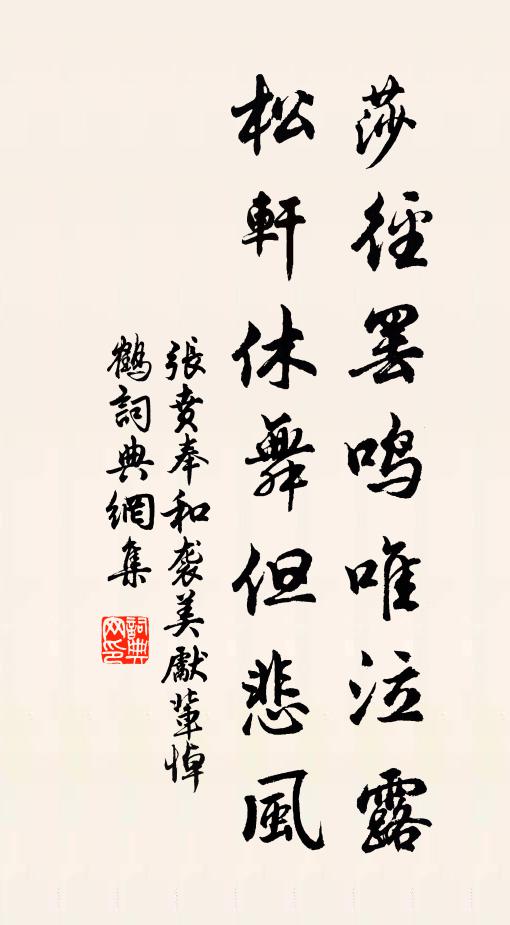 莎徑罷鳴唯泣露
松軒休舞但悲風
張賁奉和襲美獻輩悼
鶴詞典網集
詞典
网印